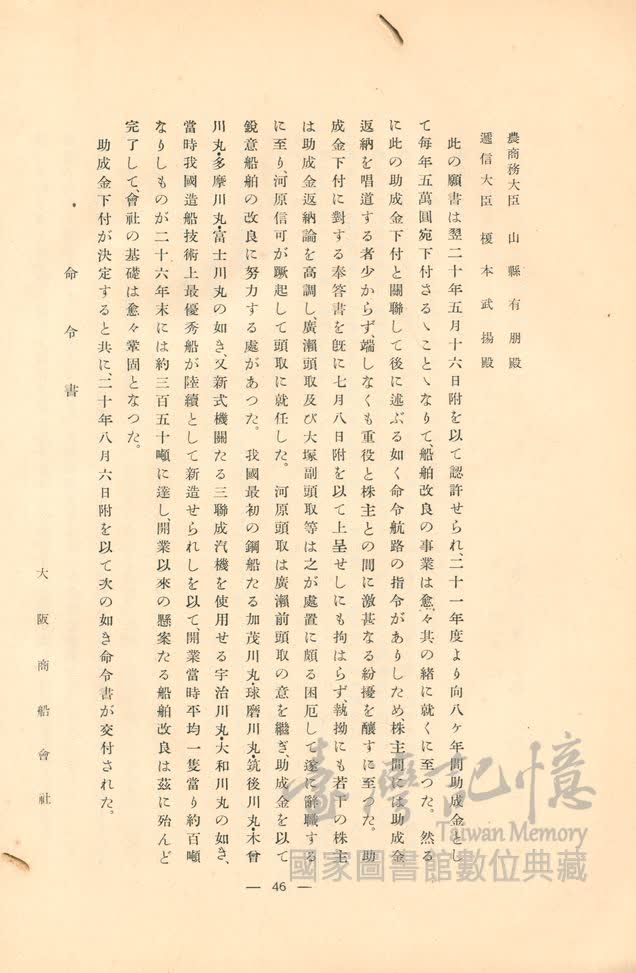 農商務大臣 山縣有朋殿
遞信大臣 榎本武揚殿
此の願書は翌二十年五月十六日附を以て認許せられ、二十一年度より向八ヶ年間助成金とし
て每年五萬圓宛下付さるゝことゝなりて、船舶改良の事業は愈々其の緒に就くに至つた。然る
に此の助成金下付と關聯して後に述ぶる如く命令航路の指令がありしため、株主間には助成金
返納を唱道する者少からず、端しなくも重役と株主との間に激甚なる紛擾を釀すに至つた。助
成金下付に對する奉答書を旣に七月八日附を以て上呈せしにも拘はらず、執拗にも若干の株主
は助成金返納論を高調し、廣瀨頭取及び大塚副頭取等は之が處置に頗る困厄して遂に辭職する
に至り、河原信可が蹶起して頭取に就任した。河原頭取は廣瀨前頭取の意を繼ぎ、助成金を以て
銳意船舶の改良に努力する處があつた。我國最初の鋼船たる加茂川丸・球磨川丸・筑後川丸・木曾
川丸・多摩川丸・富士川丸の如き、又新式機關たる三聯成汽機を使用せる宇治川丸・大和川丸の如き、
當時我國造船技術上最優秀船が陸續として新造せられしを以て、開業當時平均一隻當り約百噸
なりしものが二十六年末には約三百五十噸に達し、開業以來の懸案たる船舶改良は茲に殆んど
完了して、會社の基礎は愈々鞏固となつた。
助成金下付が決定すると共に、二十年八月六日附を以て次の如き命令書が交付された。
命令書
大阪商船會社
— 46 —
臺灣記憶
Taiwan Memory
國家圖書館數位典藏